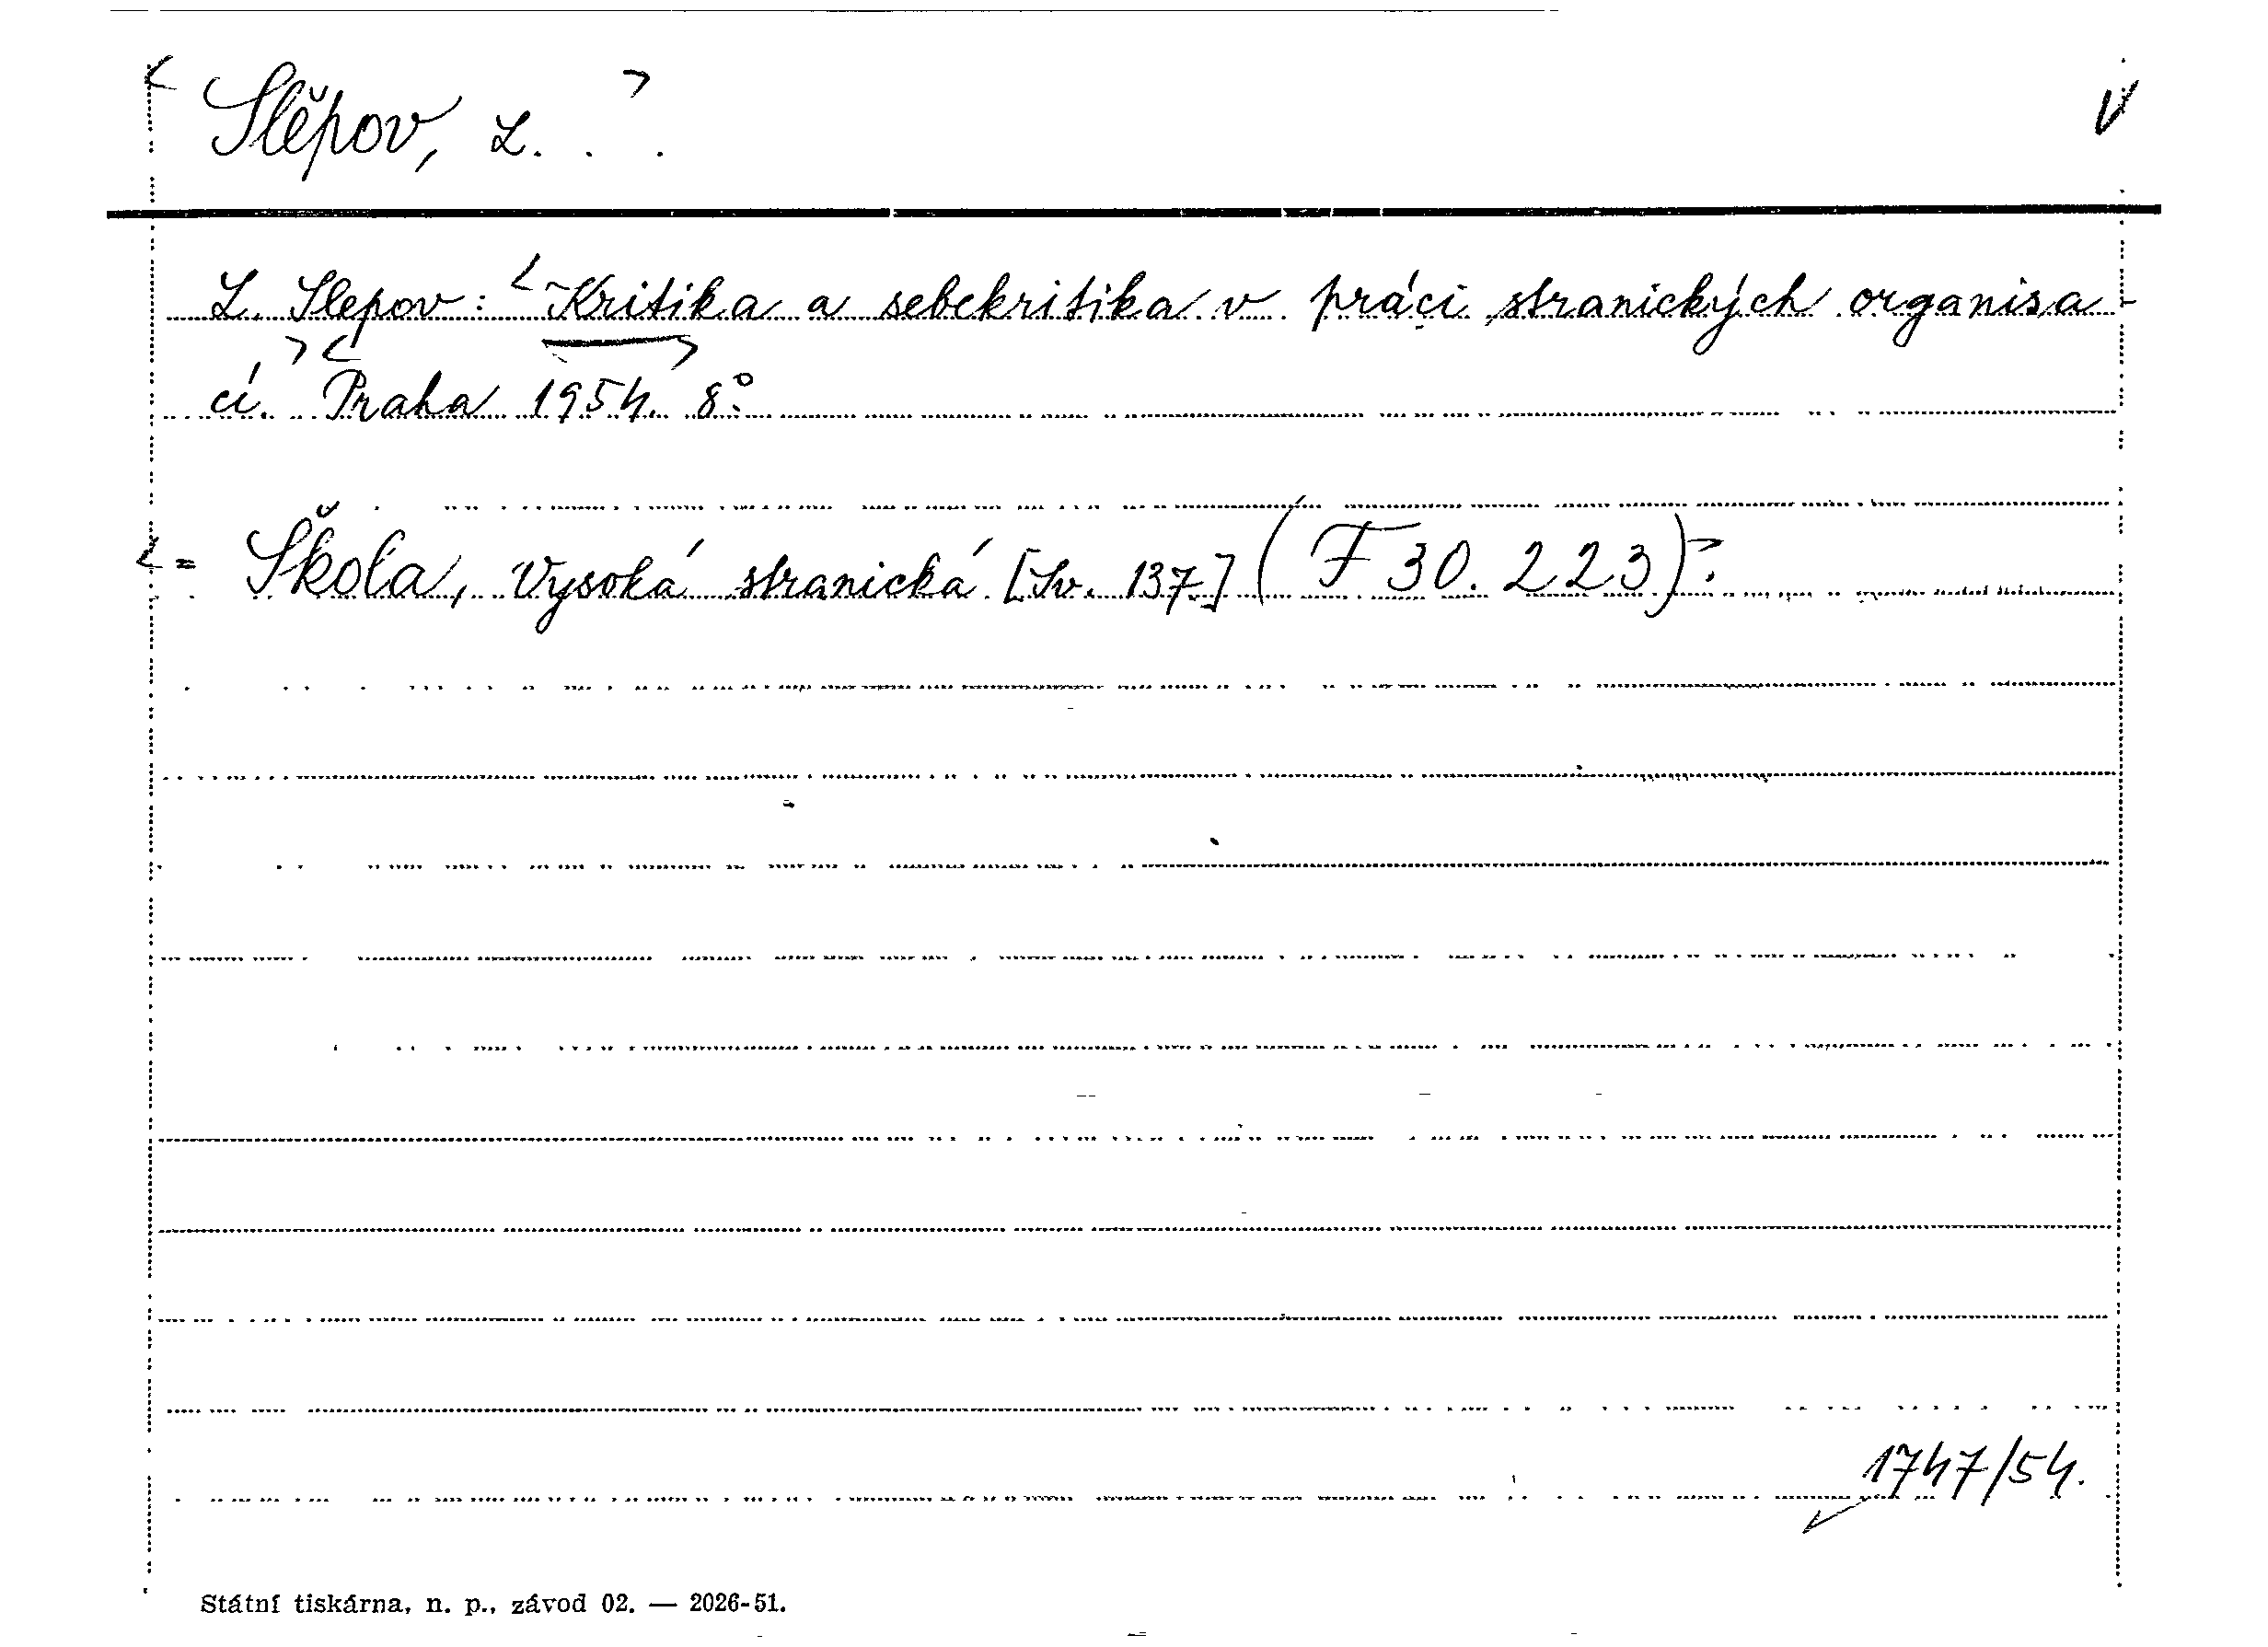 <Slěpov, L. . .>
L. Slepov: <Kritika a sebekritika v práci stranických organisa-
cí.> <Praha 1954.> 8°.
<= Škola, Vysoká stranická [Sv. 137.] (F 30. 223)>.
1747/54.
Státní tiskárna, n. p., závod 02. — 2026-51.